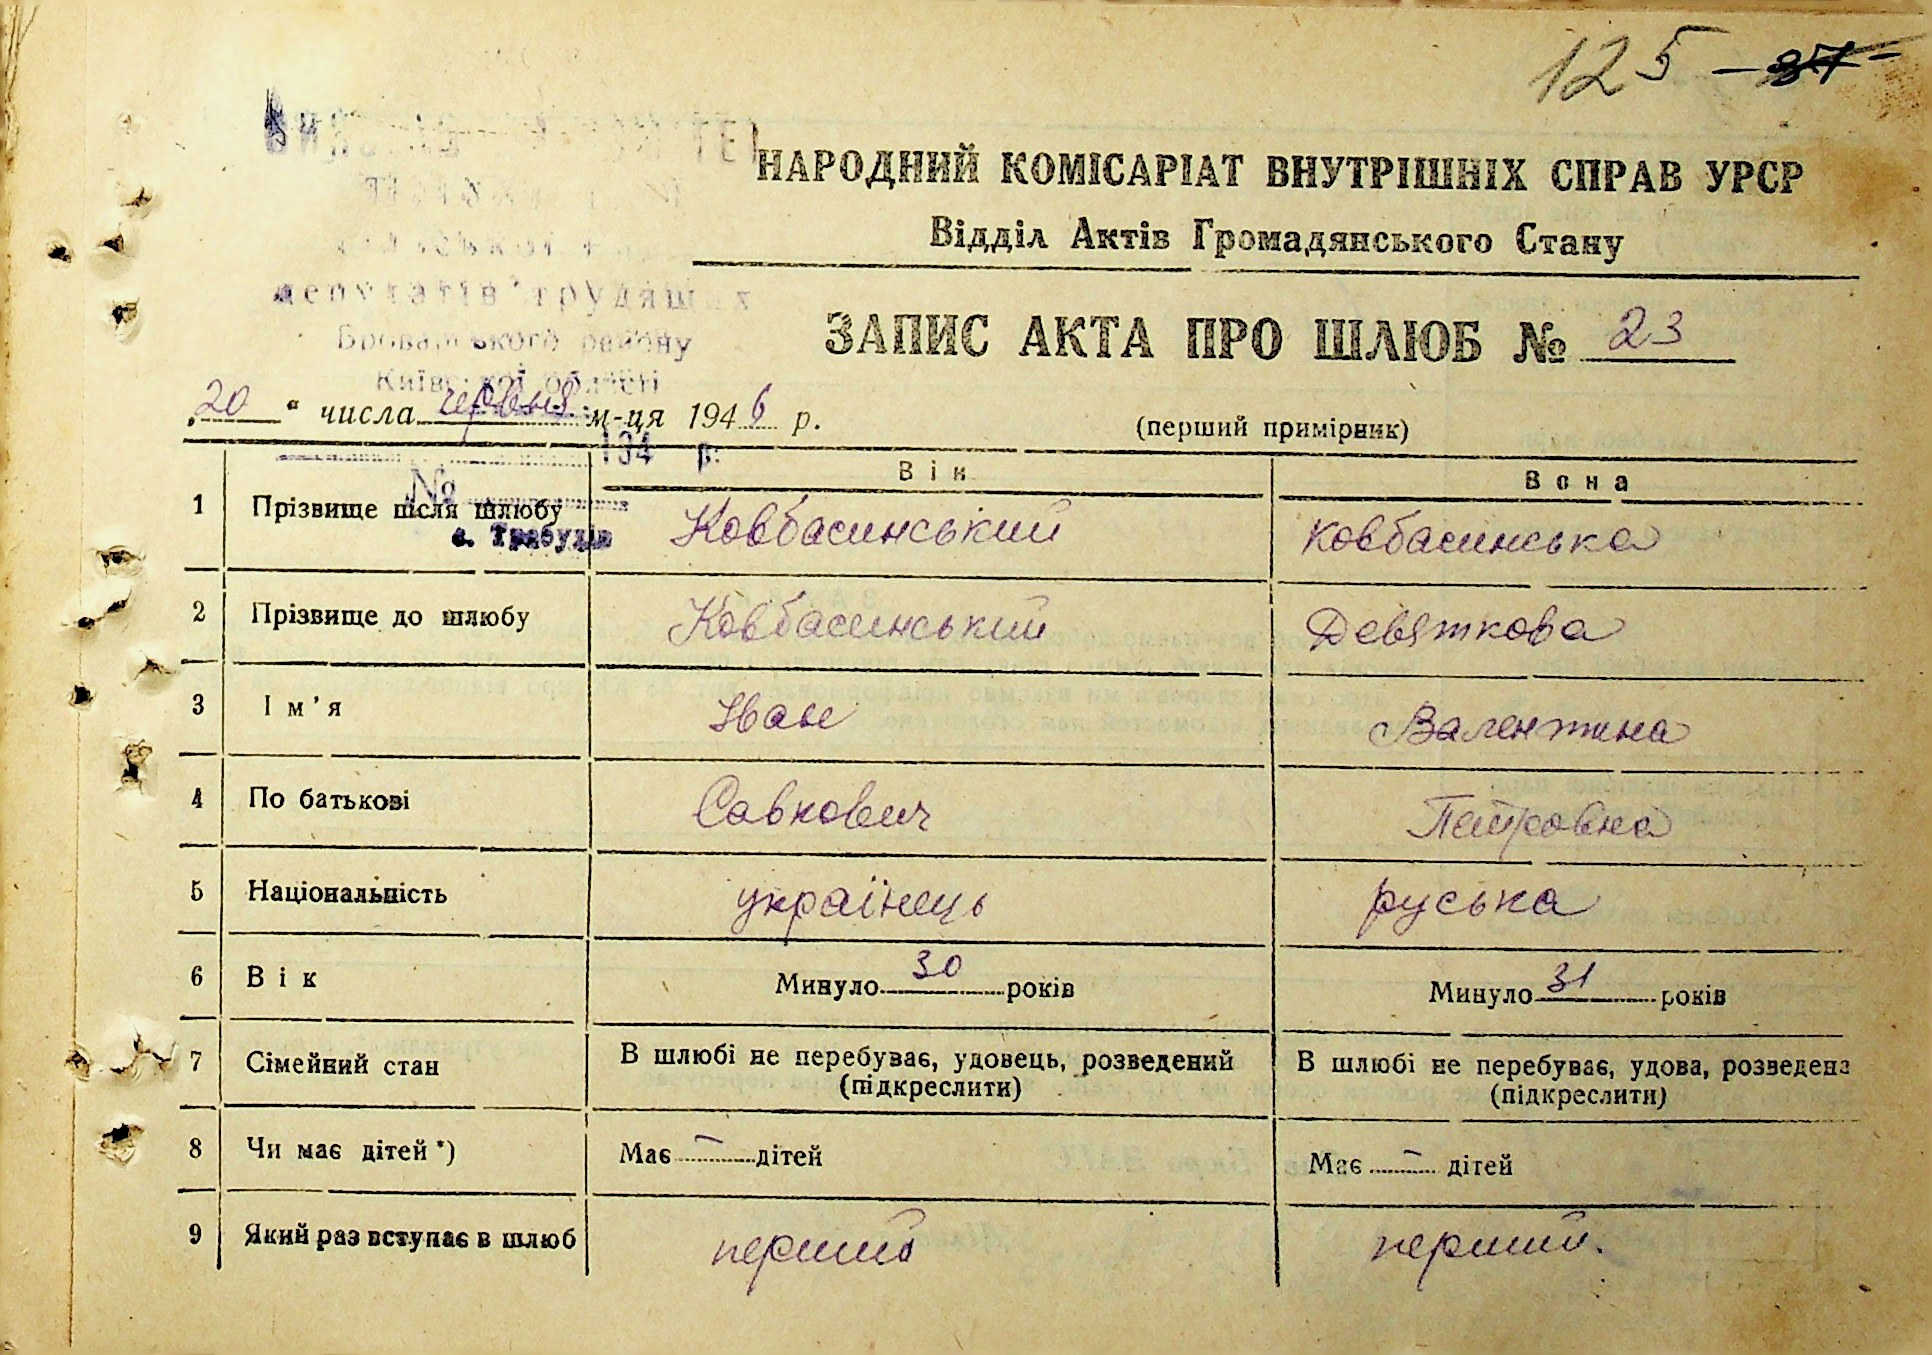 125 - 37 -
НАРОДНИЙ КОМІСАРІАТ ВНУТРІШНІХ СПРАВ УРСР
Відділ Актів Громадянського Стану
депутатів трудящих
Броварського району
Київської області
194 р.
№
с. Требухів
ЗАПИС АКТА ПРО ШЛЮБ № 23
„20“ числа червня м-ця 1946 р.
(перший примірник)
Він Вона
1 Прізвище після шлюбу Ковбасинський Ковбасинська
2 Прізвище до шлюбу Ковбасинський Девяткова
3 Ім'я Іван Валентина
4 По батькові Савкович Петровна
5 Національність українець руська
6 Вік Минуло 30 років Минуло 31 років
7 Сімейний стан В шлюбі не перебуває, удовець, розведений (підкреслити) В шлюбі не перебуває, удова, розведена (підкреслити)
8 Чи має дітей *) Має – дітей Має – дітей
9 Який раз вступає в шлюб перший перший.